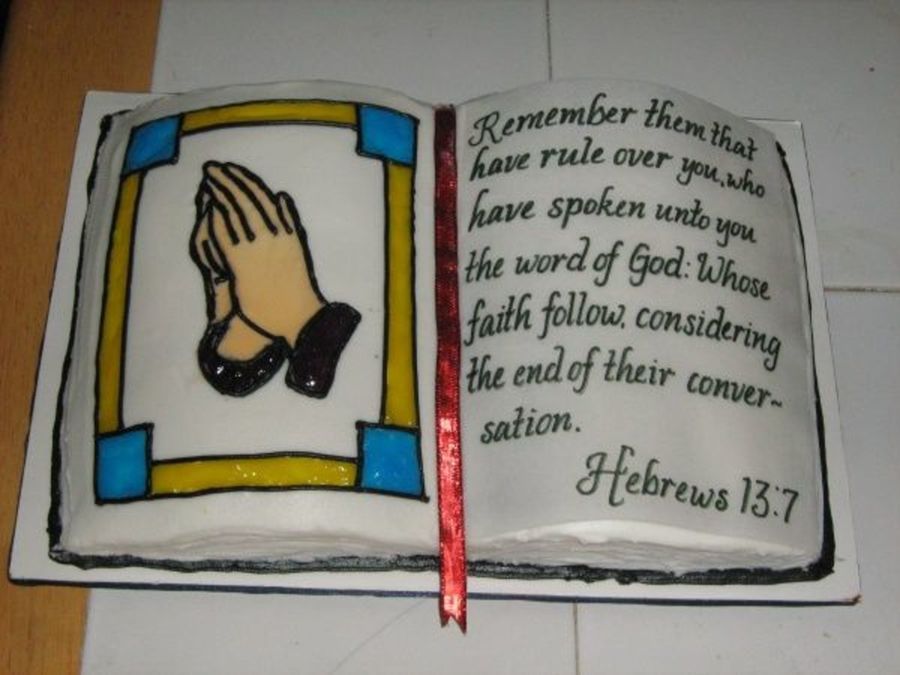 Remember them that
have rule over you, who
have spoken unto you
the word of God: Whose
faith follow, considering
the end of their conver~
sation.
Hebrews 13:7